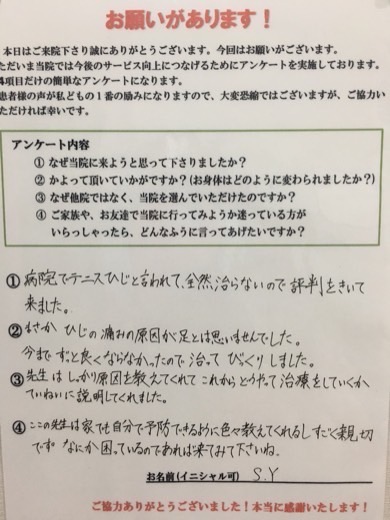 お願いがあります！
本日はご来院下さり誠にありがとうございます。今回はお願いがございます。
ただいま当院では今後のサービス向上につなげるためにアンケートを実施しております。
4項目だけの簡単なアンケートになります。
患者様の声が私どもの1番の励みになりますので、大変恐縮ではございますが、ご協力い
ただければ幸いです。
アンケート内容
① なぜ当院に来ようと思って下さりましたか？
② かよって頂いていかがですか？(お身体はどのように変わられましたか？)
③ なぜ他院ではなく、当院を選んでいただけたのですか？
④ ご家族や、お友達で当院に行ってみようか迷っている方が
いらっしゃったら、どんなふうに言ってあげたいですか？
① 病院でテニスひじと言われて、全然治らないので評判をきいて
来ました。
② まさか ひじの痛みの原因が足とは思いませんでした。
今まで ずっと良くならなかったので治って びっくりしました。
③ 先生は しっかり原因を教えてくれて これから どうやって治療をしていくか
ていねいに説明してくれました。
④ ここの先生は家でも自分で予防できるように色々教えてくれるし すごく親切
です なにか困っているのであれば来てみて下さいね。
お名前(イニシャル可) S.Y
ご協力ありがとうございました！本当に感謝いたします！